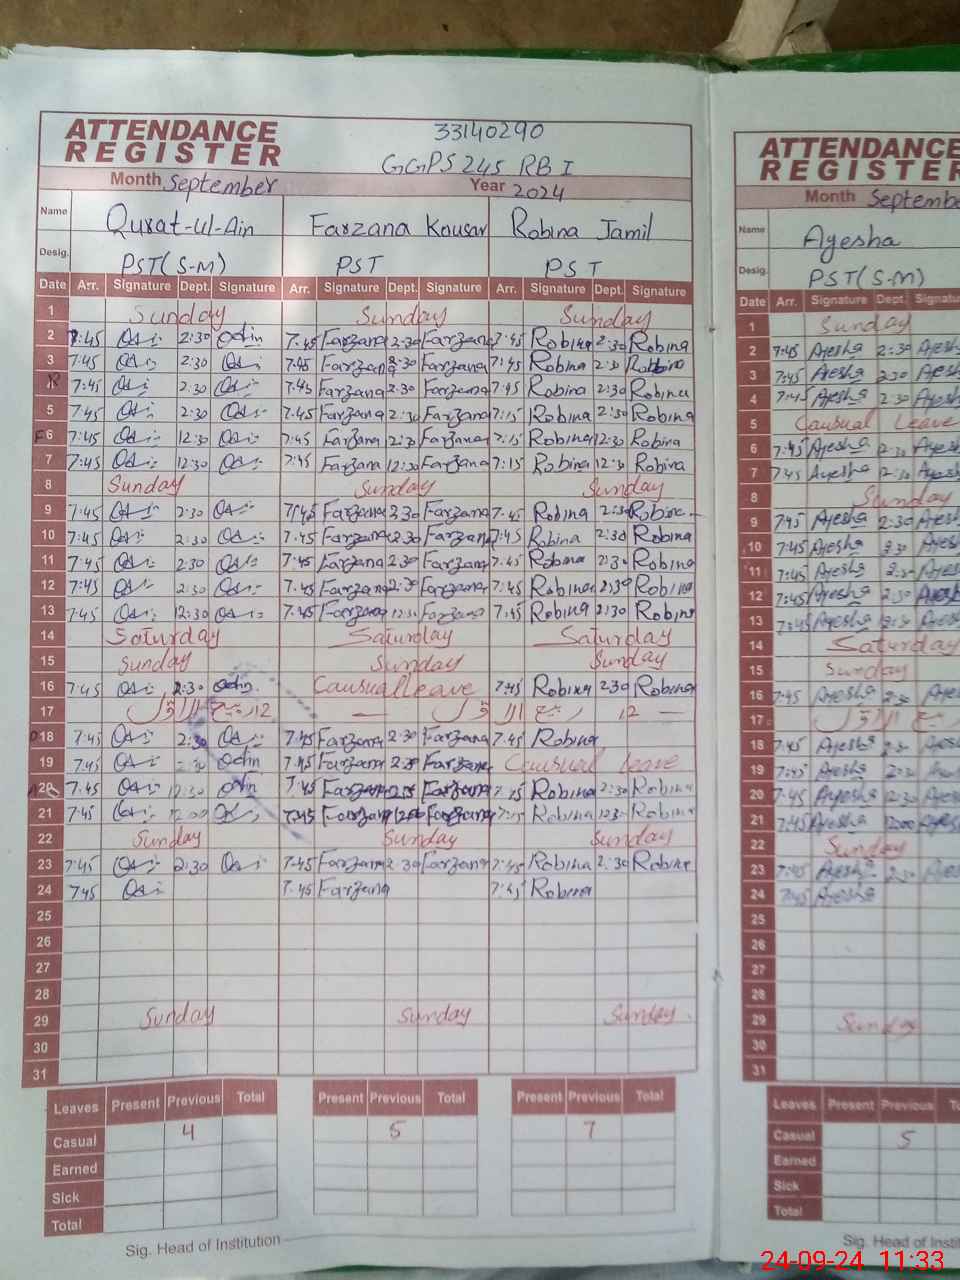 33140290
ATTENDANCE REGISTER
GGPS 245 RB I
Month September Year 2024
Name Qurat-ul-Ain Farzana Kousar Robina Jamil
Desig. PST(S-M) PST PST
Date Arr. Signature Dept. Signature Arr. Signature Dept. Signature Arr. Signature Dept. Signature
1 Sunday Sunday Sunday
2 7:45 2:30 7:45 Farzana 2:30 Farzana 7:45 Robina 2:30 Robina
3 7:45 2:30 7:45 Farzana 2:30 Farzana 7:45 Robina 2:30 Robina
7:45 2:30 7:45 Farzana 2:30 Farzana 7:45 Robina 2:30 Robina
5 7:45 2:30 7:45 Farzana 2:30 Farzana 7:15 Robina 2:30 Robina
6 7:45 12:30 7:45 Farzana 12:30 Farzana 7:15 Robina 12:30 Robina
7 7:45 12:30 7:45 Farzana 12:30 Farzana 7:15 Robina 12:30 Robina
8 Sunday Sunday Sunday
9 7:45 2:30 7:45 Farzana 2:30 Farzana 7:45 Robina 2:30 Robina
10 7:45 2:30 7:45 Farzana 2:30 Farzana 7:45 Robina 2:30 Robina
11 7:45 2:30 7:45 Farzana 2:30 Farzana 7:45 Robina 2:30 Robina
12 7:45 2:30 7:45 Farzana 2:30 Farzana 7:45 Robina 2:30 Robina
13 7:45 12:30 7:45 Farzana 12:30 Farzana 7:45 Robina Robina
14 Saturday Saturday Saturday
15 Sunday Sunday Sunday
16 7:45 2:30 Causual leave 7:45 Robina 2:30 Robina
17 12 ربیع الاول 12 ربیع الاول
18 7:45 2:30 7:45 Farzana 2:30 Farzana 7:45 Robina
19 7:45 2:30 7:45 Farzana 2:30 Farzana Causual leave
20 7:45 12:30 7:45 Farzana Farzana Robina 2:30 Robina
21 7:45 12:00 7:45 Farzana Farzana 7:15 Robina Robina
22 Sunday Sunday Sunday
23 7:45 2:30 7:45 Farzana 2:30 Farzana 7:45 Robina 2:30 Robina
24 7:45 7:45 Farzana 7:45 Robina
25
26
27
28
29 Sunday Sunday Sunday
30
31
Leaves Present Previous Total Present Previous Total Present Previous Total
Casual 4 5 7
Earned
Sick
Total
Sig. Head of Institution
ATTENDANCE
REGISTER
Month
Name Ayesha
Desig. PST(S-M)
Date Arr. Signature Dept.
1 Sunday
2 7:45 Ayesha 2:30
3 7:45 Ayesha 2:30
4 7:45 Ayesha 2:30
5 Causual Leave
6 7:45 Ayesha 12:30
7 7:45 Ayesha 12:30
8 Sunday
9 7:45 Ayesha 2:30
10 7:45 Ayesha 2:30
11 7:45 Ayesha 2:30
12 7:45 Ayesha 2:30
13 7:45 Ayesha
14 Saturday
15 Sunday
16 7:45 Ayesha 2:30
17
18 7:45 Ayesha
19 7:45 Ayesha 2:30
20 7:45 Ayesha 12:30
21 7:45 Ayesha 12:00
22 Sunday
23 7:45 Ayesha 2:30
24 7:45 Ayesha
25
26
27
28
29 Sunday
30
31
Leaves Present Previous
Casual 5
Earned
Sick
Total
Sig. Head of
24-09-24 11:33